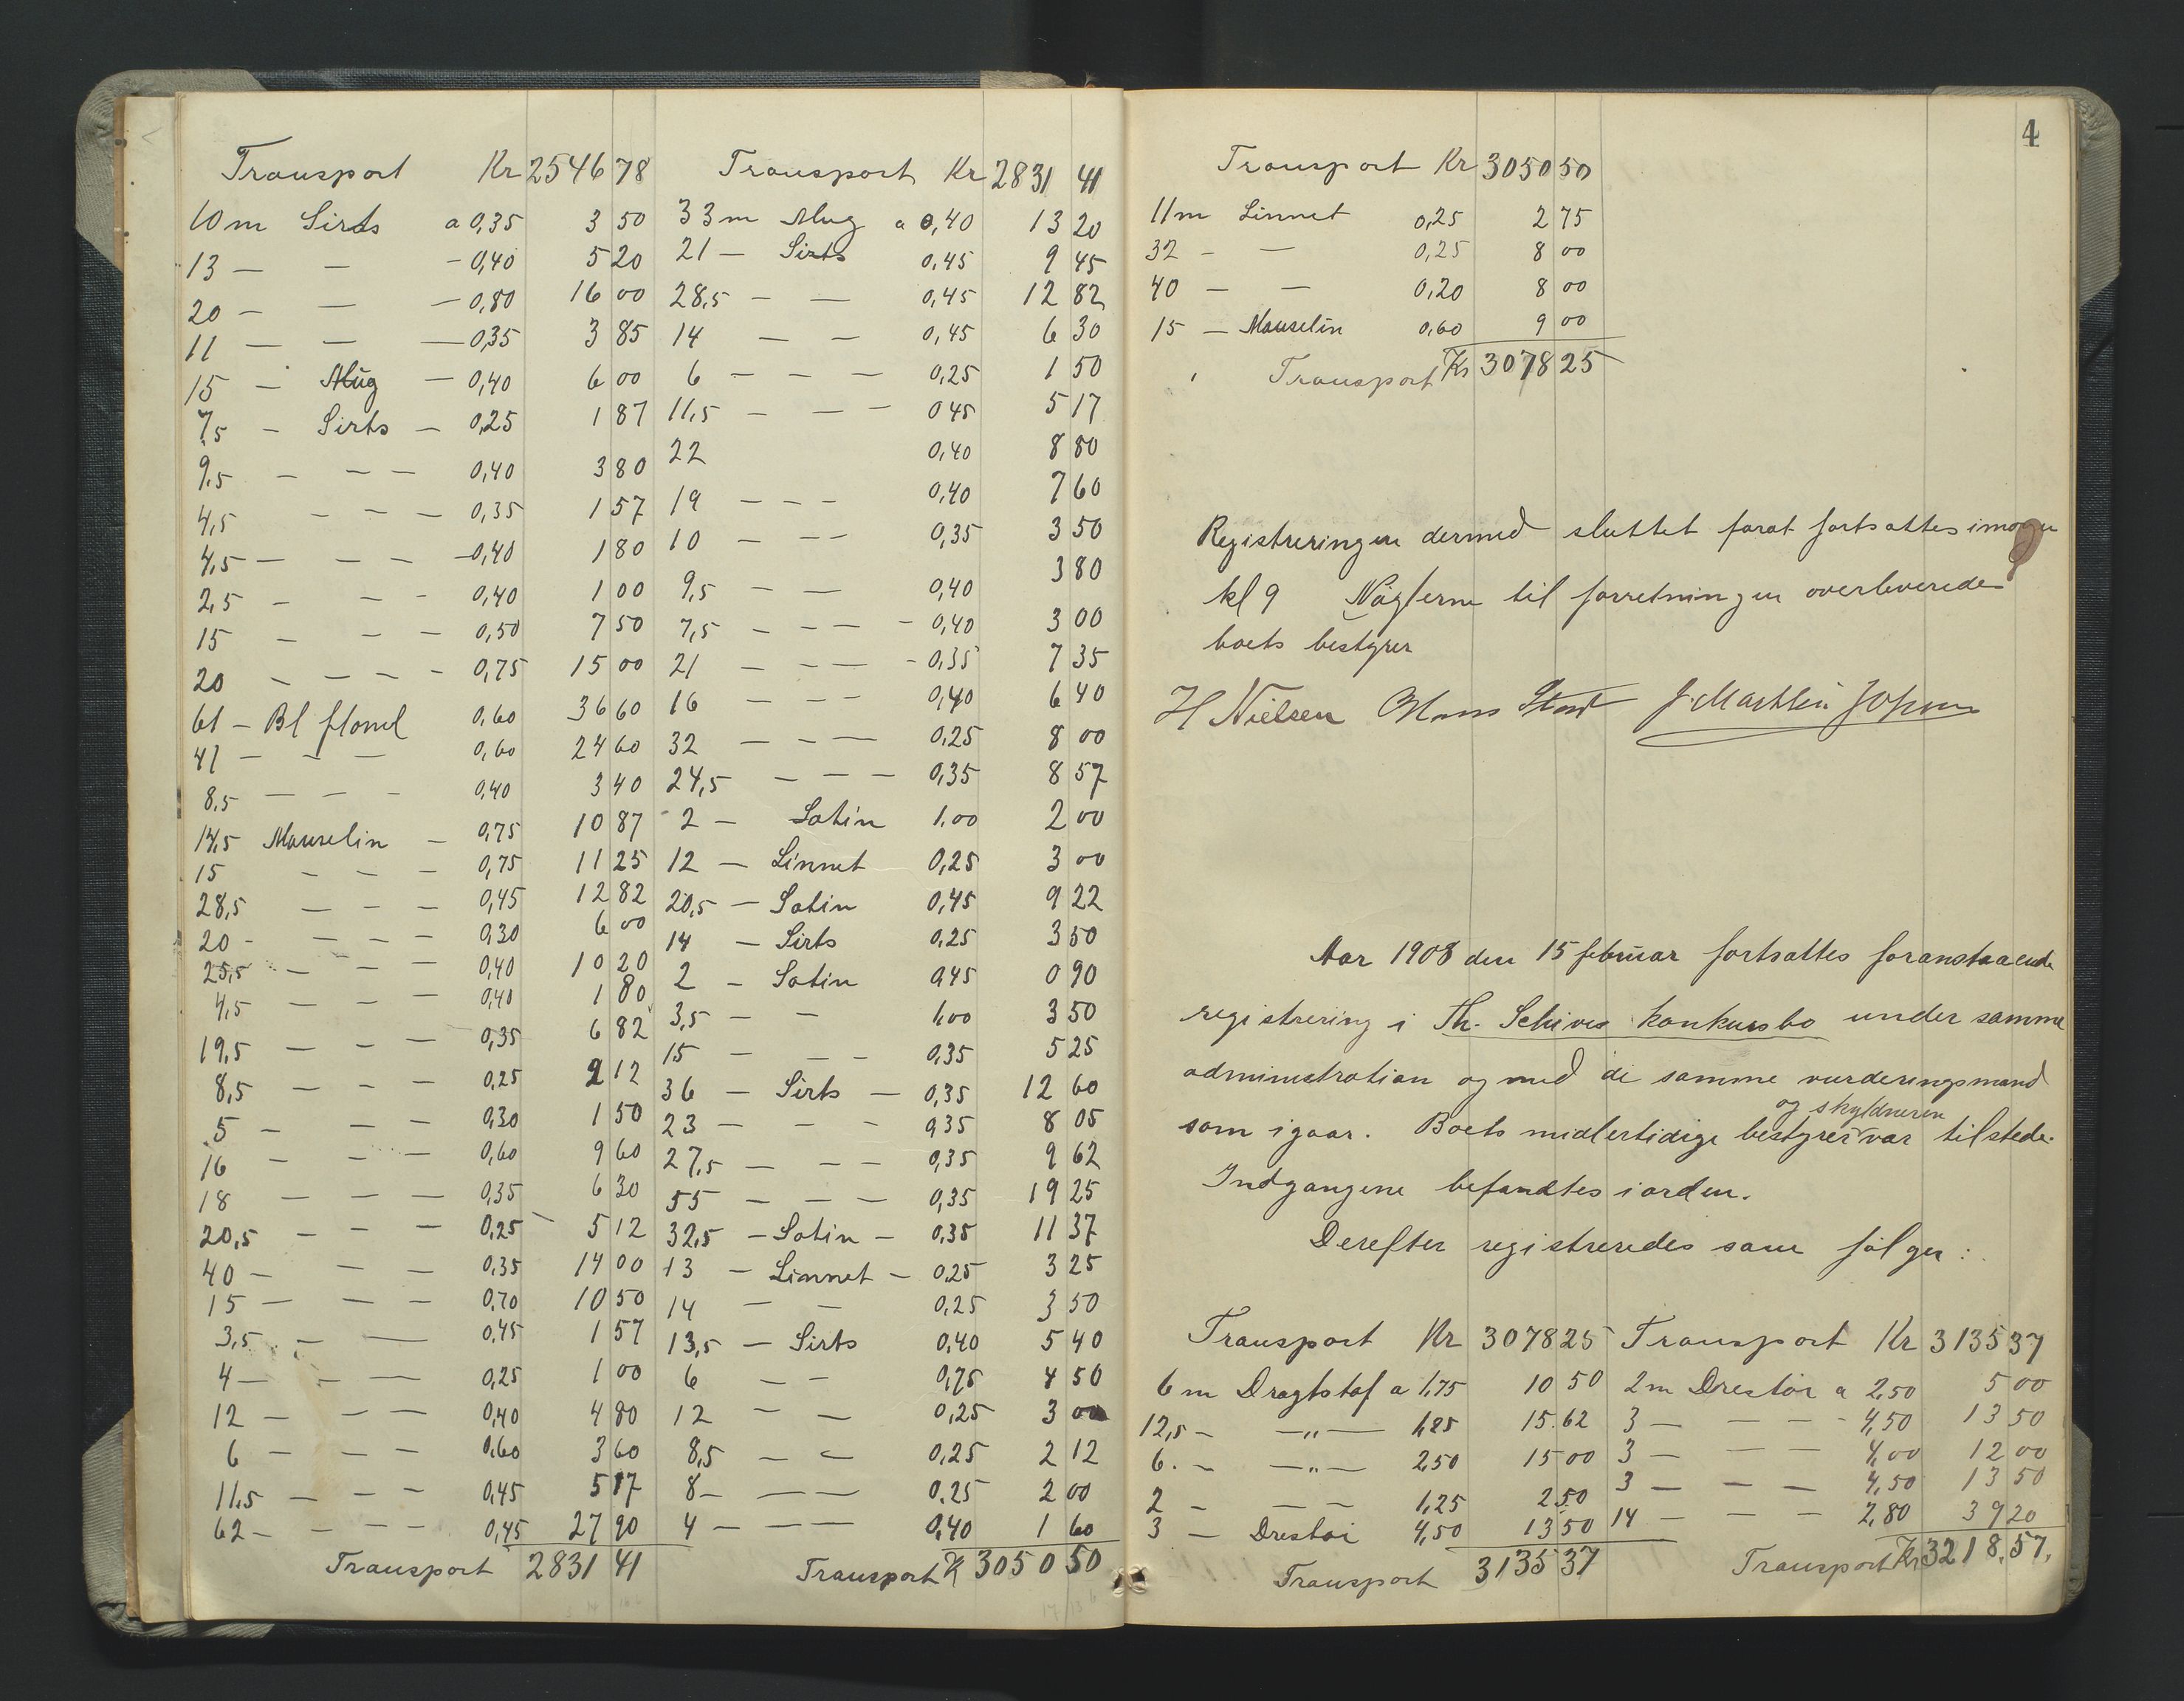 Transport Kr 2546 78
10 m Sirts a 0,35 3 50
13 — — - 0,40 5 20
20 - — — 0,80 16 00
11 — — — 0,35 3 85
15 - Mug — 0,40 6 00
7,5 - Sirts — 0,25 1 87
9,5 - — — 0,40 3 80
4,5 — — — 0,35 1 57
4,5 — — — — 0,40 1 80
2,5 - — - 0,40 1 00
15 - — - 0,50 7 50
20 - - — - 0,75 15 00
61 — Bl flonel 0,60 36 60
41 — — — 0,60 24 60
8,5 — — — 0,40 3 40
14,5 Mouselin — 0,75 10 87
15 — — — 0,75 11 25
28,5 — — — 0,45 12 82
20 - — — — 0,30 6 00
25,5 - — — 0,40 10 20
4,5 — — — 0,40 1 80
19,5 — — — 0,35 6 82
8,5 — — — 0,25 2 12
5 — — — 0,30 1 50
16 - — — 0,60 9 60
18 — — — 0,35 6 30
20,5 — — — 0,25 5 12
40 — — — 0,35 14 00
15 — — — 0,70 10 50
3,5 — — 0,45 1 57
4 — — — 0,25 1 00
12 — — — 0,40 4 80
6 — — — 0,60 3 60
11,5 — — — 0,45 5 17
62 - — — — 0,45 27 90
Transport 2831 41
Transport Kr 2831 41
33 m Mug a 0,40 13 20
21 — Sirts 0,45 9 45
28,5 — — 0,45 12 82
14 — — 0,45 6 30
6 — — — 0,25 1 50
11,5 — — — 0 45 5 17
22 0,40 8 80
19 — — — 0,40 7 60
10 — — — 0,35 3 50
9,5 — — 0,40 3 80
7,5 — — — - 0,40 3 00
21 — — — - 0,35 7 35
16 — — — 0,40 6 40
32 — — — 0,25 8 00
24,5 — — — 0,35 8 57
2 — Satin 1,00 2 00
12 — Linnet 0,25 3 00
20,5 — Satin 0,45 9 22
14 — Sirts 0,25 3 50
2 — Satin 0,45 0 90
3,5 — — 1,00 3 50
15 — — — 0,35 5 25
36 — Sirts — 0,35 12 60
23 — — — 0,35 8 05
27,5 — — — 0,35 9 62
55 — — — 0,35 19 25
32,5 — Satin — 0,35 11 37
13 — Linnet — 0,25 3 25
14 — — 0,25 3 50
13,5 — Sirts 0,40 5 40
6 — — 0,75 4 50
12 — — 0,25 3 00
8,5 — — 0,25 2 12
8 — — — 0,25 2 00
4 — — — 0,40 1 60
Transport K 3050 50
4
Transport Kr 3050 50
11 m Linnet 0,25 2 75
32 - — 0,25 8 00
40 - — 0,20 8 00
15 — Mouselin 0,60 9 00
Transport Kr 3078 25
Registreringen dermed sluttet forat fortsættes imorgen
kl 9 Nøglerne til forretningen overleveredes
boets bestyrer
H Nielsen Hans
Aar 1908 den 15 februar fortsattes foranstaaende
registrering i Th. Schives konkursbo under samme
administration og med de samme vurderingsmænd
og skyldneren
som igaar. Boets midlertidige bestyrer var tilstede.
Indgangene befandtes i orden.
Derefter registreredes som følger :
Transport Kr 3078 25
6 m Dragtstof a 1,75 10 50
12,5 - — „ — 1,25 15.62
6. - — „ — 2,50 15 00
2 - — — 1,25 2 50
3 — Drestøi 4,50 13 50
Transport 3135 37
Transport Kr 3135 37
2 m Drestøi a 2,50 5 00
3 — — — - 4,50 13 50
3 — — — 4,00 12 00
3 — — — 4,50 13 50
14 — — — 2,80 39 20
Transport Kr 3218,57,